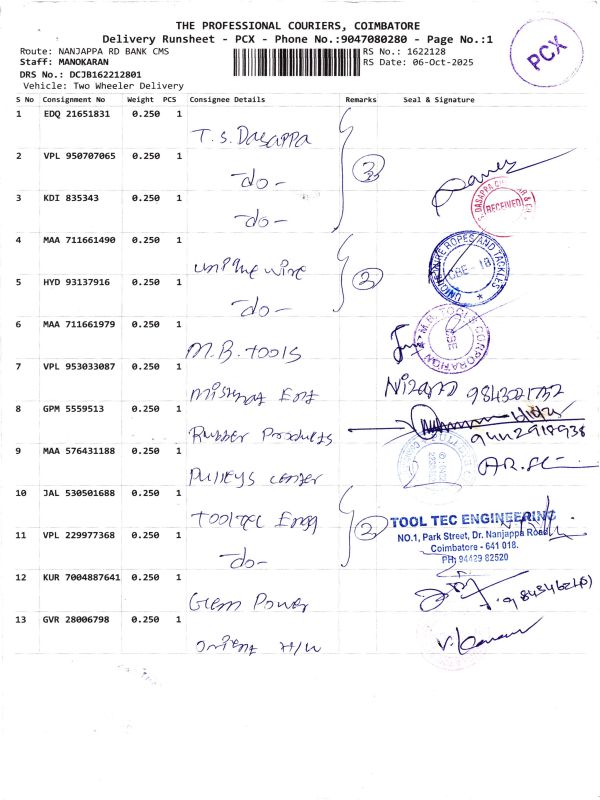 THE PROFESSIONAL COURIERS, COIMBATORE
Delivery Runsheet - PCX - Phone No.:9047080280 - Page No.:1
Route: NANJAPPA RD BANK CMS
RS No.: 1622128
Staff: MANOKARAN
RS Date: 06-Oct-2025
DRS No.: DCJB162212801
Vehicle: Two Wheeler Delivery
PCX
S No Consignment No Weight PCS Consignee Details Remarks Seal & Signature
1 EDQ 21651831 0.250 1 T.S. Dasappa
2 VPL 950707065 0.250 1 -do- 3
3 KDI 835343 0.250 1 -do-
RECEIVED
4 MAA 711661490 0.250 1 unique wire
UNIQUE WIRE ROPES AND TACKLES
CBE - 18
5 HYD 93137916 0.250 1 -do- 2
6 MAA 711661979 0.250 1 M.B. Tools
M.B. TOOLS CORPORATION
CBE
7 VPL 953033087 0.250 1
Nizam 9843021732
8 GPM 5559513 0.250 1 Rubber Products
9442918938
9 MAA 576431188 0.250 1 Pulleys center
10 JAL 530501688 0.250 1 Tooltec Engg
11 VPL 229977368 0.250 1 -do- 2
TOOL TEC ENGINEERING
NO.1, Park Street, Dr. Nanjappa Road,
Coimbatore - 641 018.
PH: 94429 82520
12 KUR 7004887641 0.250 1 Gem Power
13 GVR 28006798 0.250 1 orient H/W